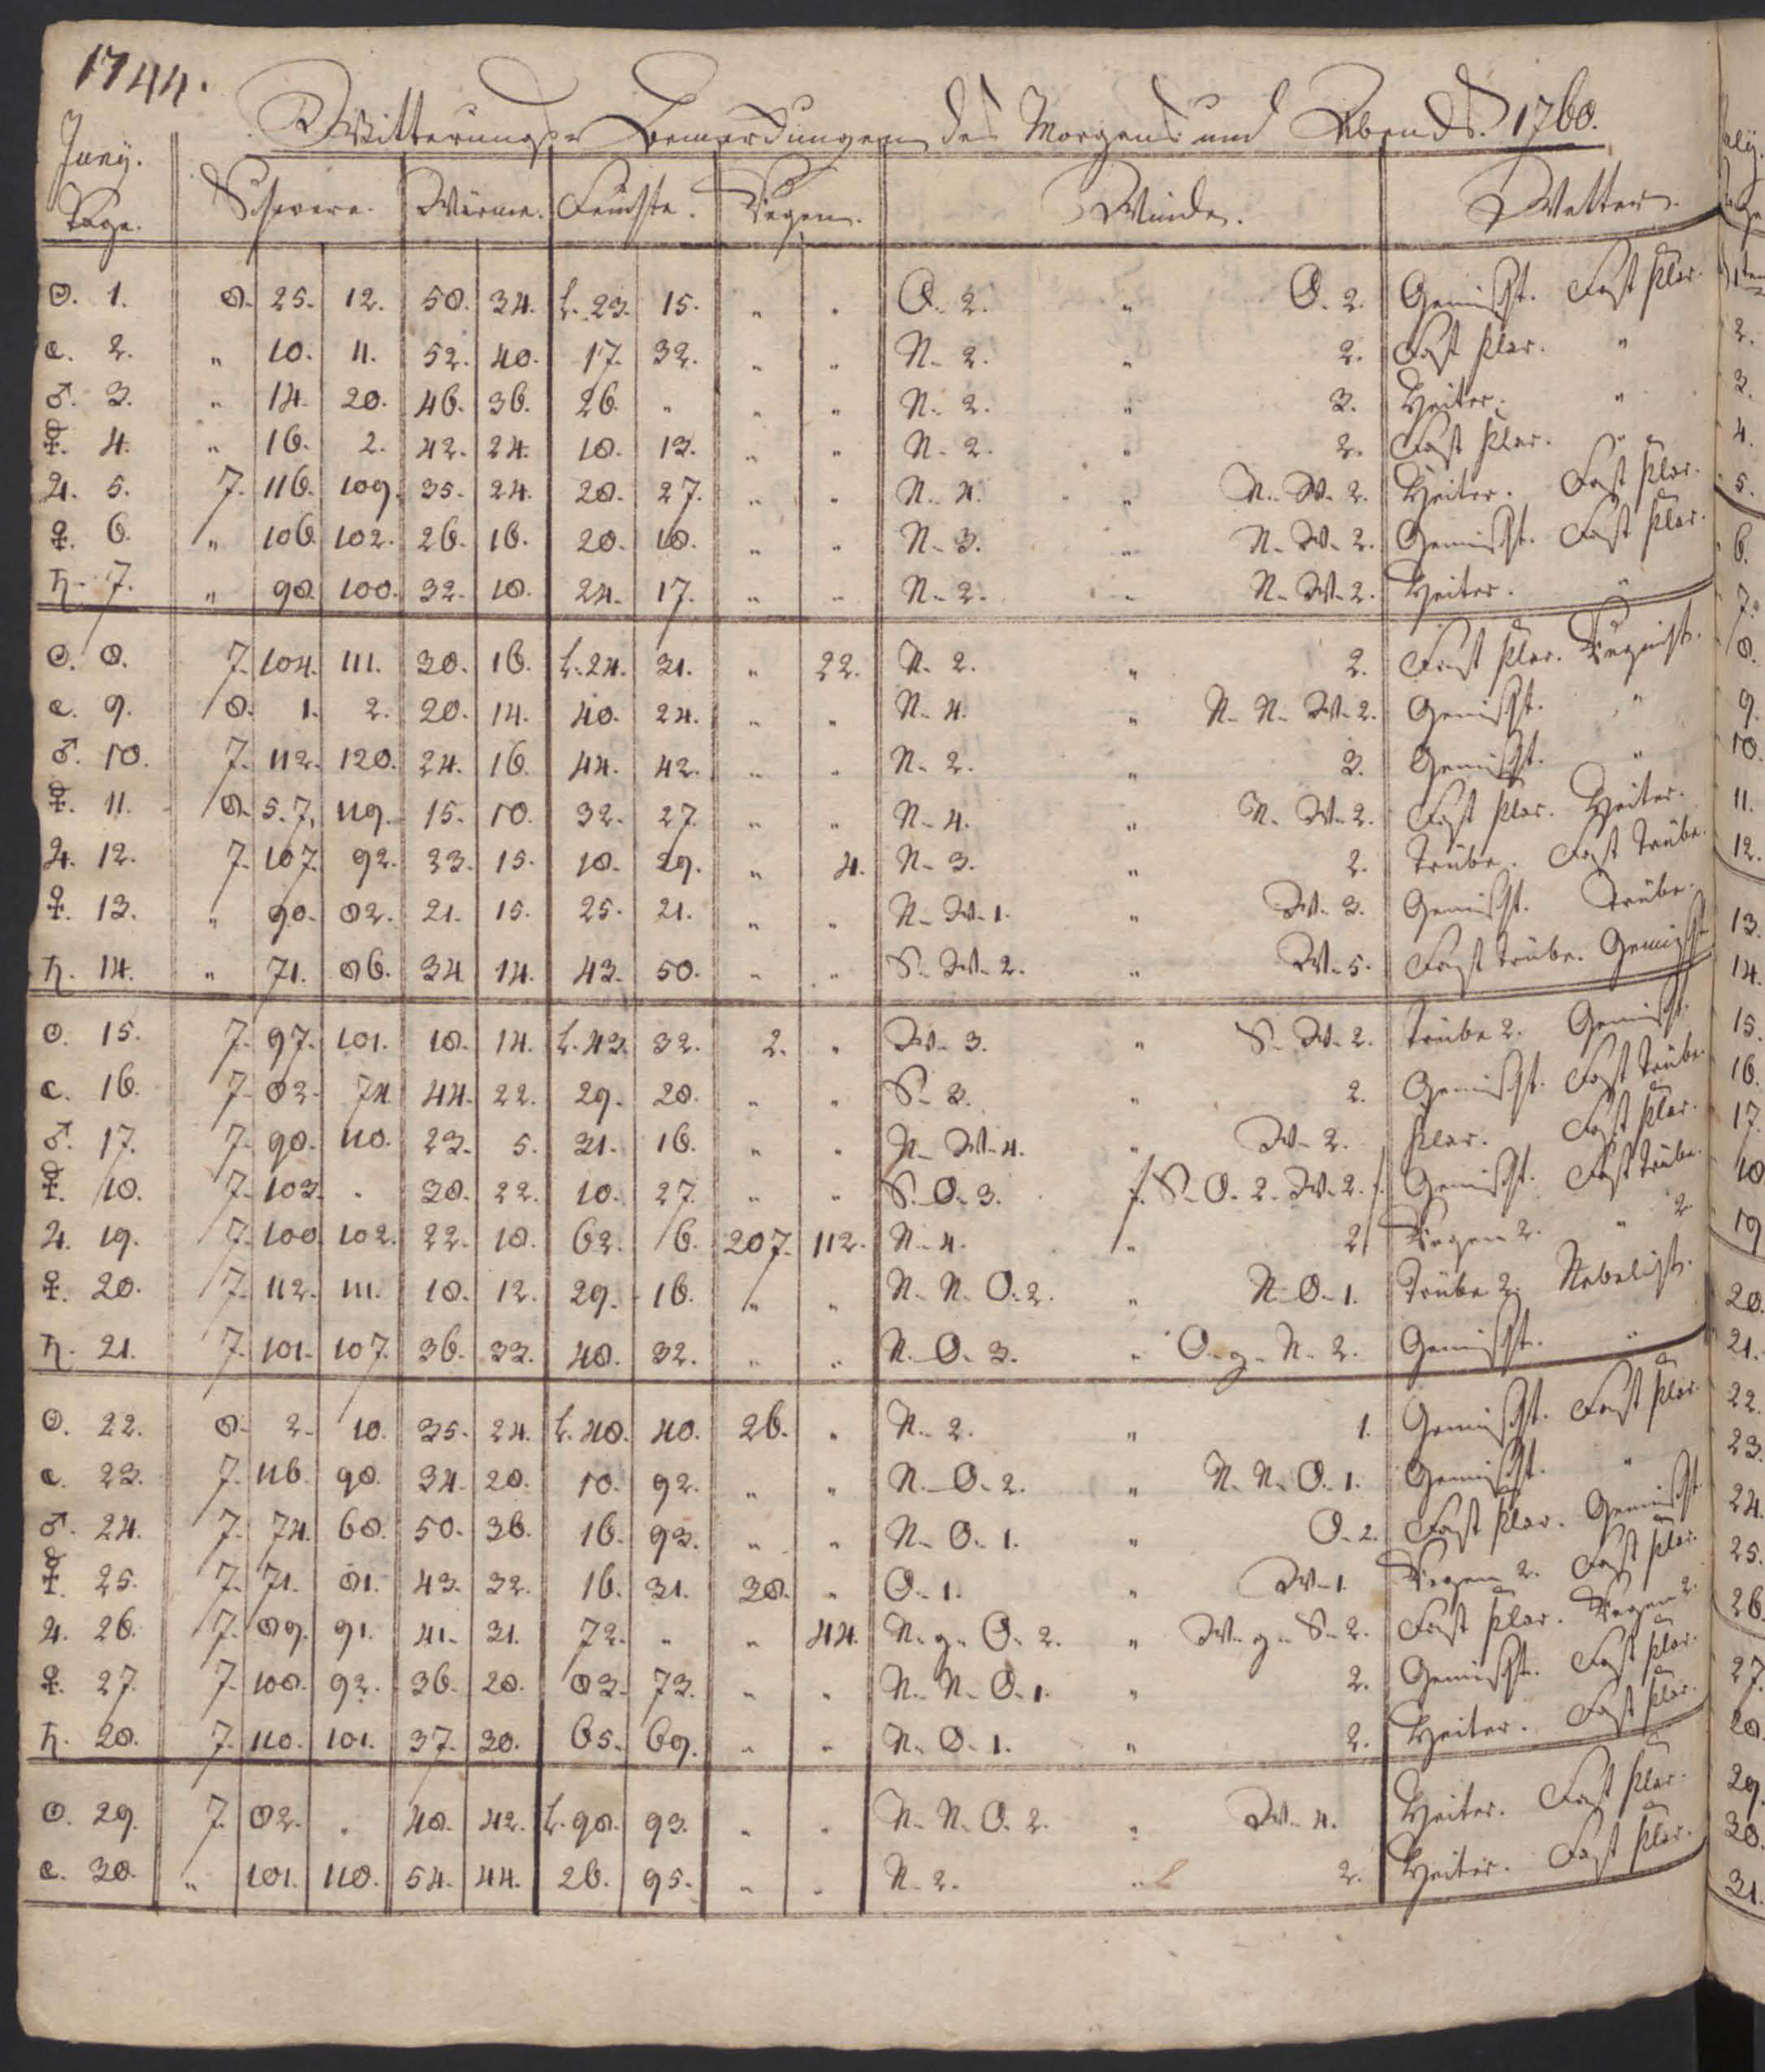 1744.
Witterungs= Bemerckungen des Morgens und Abends. 1760.
Juny.
Tage. Schwere. Wärme. Feuchte. Regen. Winde. Wetter.
☉. 1. 8. 25. 12. 50. 34. L. 23. 15. " " O. 2. " O. 2. Gemischt. Fast klar.
☾. 2. " 10. 11. 52. 40. 17. 32. " " N. 2. " 2. Fast klar. "
♂. 3. " 14. 20. 46. 36. 26. " " " N. 2. " 3. Heiter. "
☿. 4. " 16. 2. 42. 24. 18. 13. " " N. 2. " 2. Fast klar. "
♃. 5. 7. 116. 109. 35. 24. 28. 27. " " N. 4. " N. W. 2. Heiter. Fast klar.
♀. 6. " 106. 102. 26. 16. 20. 18. " " N. 3. " N. W. 2. Gemischt. Fast klar.
♄. 7. " 98. 100. 32. 18. 24. 17. " " N. 2. " N. W. 2. Heiter. "
☉. 8. 7. 104. 111. 30. 16. L. 24. 31. " 22. N. 2. " 2. Fast klar. Regnicht.
☾. 9. 8. 1. 2. 20. 14. 40. 24. " " N. 4. " N. N. W. 2. Gemischt. "
♂. 10. 7. 112. 120. 24. 16. 44. 42. " " N. 2. " 3. Gemischt. "
☿. 11. 8. 5. 7. 119. 15. 10. 32. 27. " " N. 4. " N. W. 2. Fast klar. Heiter.
♃. 12. 7. 107. 92. 23. 15. 18. 29. " 4. N. 3. " 2. Trübe. Fast trübe.
♀. 13. " 90. 82. 21. 15. 25. 21. " " N. W. 1. " W. 3. Gemischt. Trübe.
♄. 14. " 71. 86. 34. 14. 43. 50. " " S. W. 2. " W. 5. Fast trübe. Gemischt
☉. 15. 7. 97. 101. 18. 14. L. 43. 32. 2. " W. 3. " S. W. 2. Trübe 2. Gemischt.
☾. 16. 7. 83. 74. 44. 22. 29. 20. " " S. 3. " 2. Gemischt. Fast trübe.
♂. 17. 7. 98. 110. 23. 5. 31. 16. " " N. W. 4. " W. 2. Klar. Fast klar.
☿. 18. 7. 103. " 30. 22. 10. 27. " " S. O. 3. S. O. 2. W. 2. Gemischt. Fast trübe.
♃. 19. 7. 100. 102. 22. 18. 62. 6. 207. 112. N. 4. " 2. Regen 2. " 2.
♀. 20. 7. 112. 111. 18. 12. 29. 16. " " N. N. O. 2. " N. O. 1. Trübe 2. Nebelicht.
♄. 21. 7. 101. 107. 36. 33. 48. 32. " " N. O. 3. " O. g. N. 2. Gemischt. "
☉. 22. 8. 2. 10. 35. 24. L. 48. 40. 26. " N. 2. " 1. Gemischt. Fast klar.
☾. 23. 7. 116. 98. 34. 20. 10. 92. " " N. O. 2. " N. N. O. 1. Gemischt. "
♂. 24. 7. 74. 68. 50. 36. 16. 93. " " N. O. 1. " O. 2. Fast klar. Gemischt.
☿. 25. 7. 71. 81. 43. 32. 16. 31. 38. " O. 1. " W. 1. Regen 2. Fast klar.
♃. 26. 7. 89. 91. 41. 31. 72. " " 44. N. g. O. 2. " W. g. S. 2. Fast klar. Regen 2.
♀. 27. 7. 100. 92. 36. 28. 83. 73. " " N. N. O. 1. " 2. Gemischt. Fast klar.
♄. 28. 7. 110. 101. 37. 30. 65. 69. " " N. O. 1. " 2. Heiter. Fast klar.
☉. 29. 7. 82. " 48. 42. L. 98. 93. " " N. N. O. 2. " W. 4. Heiter. Fast klar.
☾. 30. " 101. 118. 54. 44. 26. 95. " " N. 2. " 2. Heiter. Fast klar.